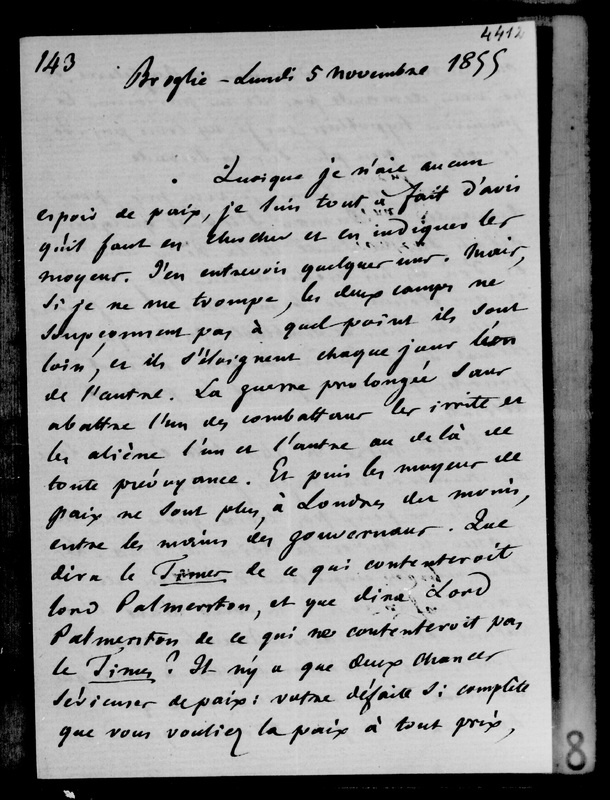 4412
143
Broglie - Lundi 5 novembre 1855
Quoique je n'aie aucun
espoir de paix, je suis tout à fait d'avis
qu'il faut en chercher et en indiquer les
moyens. J'en entrevois quelques uns. Mais,
si je ne me trompe, les deux camps ne
soupçonnent pas à quel point ils sont
loin, et ils s'éloignent chaque jour l'un
de l'autre. La guerre prolongée sans
abattre l'un des combattans les irrite et
les aliène l'un et l'autre au delà de
toute prévoyance. Et puis les moyens de
paix ne sont plus, à Londres du moins,
entre les mains des gouvernans. Que
dira le Times de ce qui contenteroit
lord Palmerston, et que dira Lord
Palmerston de ce qui ne contenteroit pas
le Times? Il n'y a que deux chances
sérieuses de paix: votre défaite si complète
que vous vouliez la paix à tout prix,
8